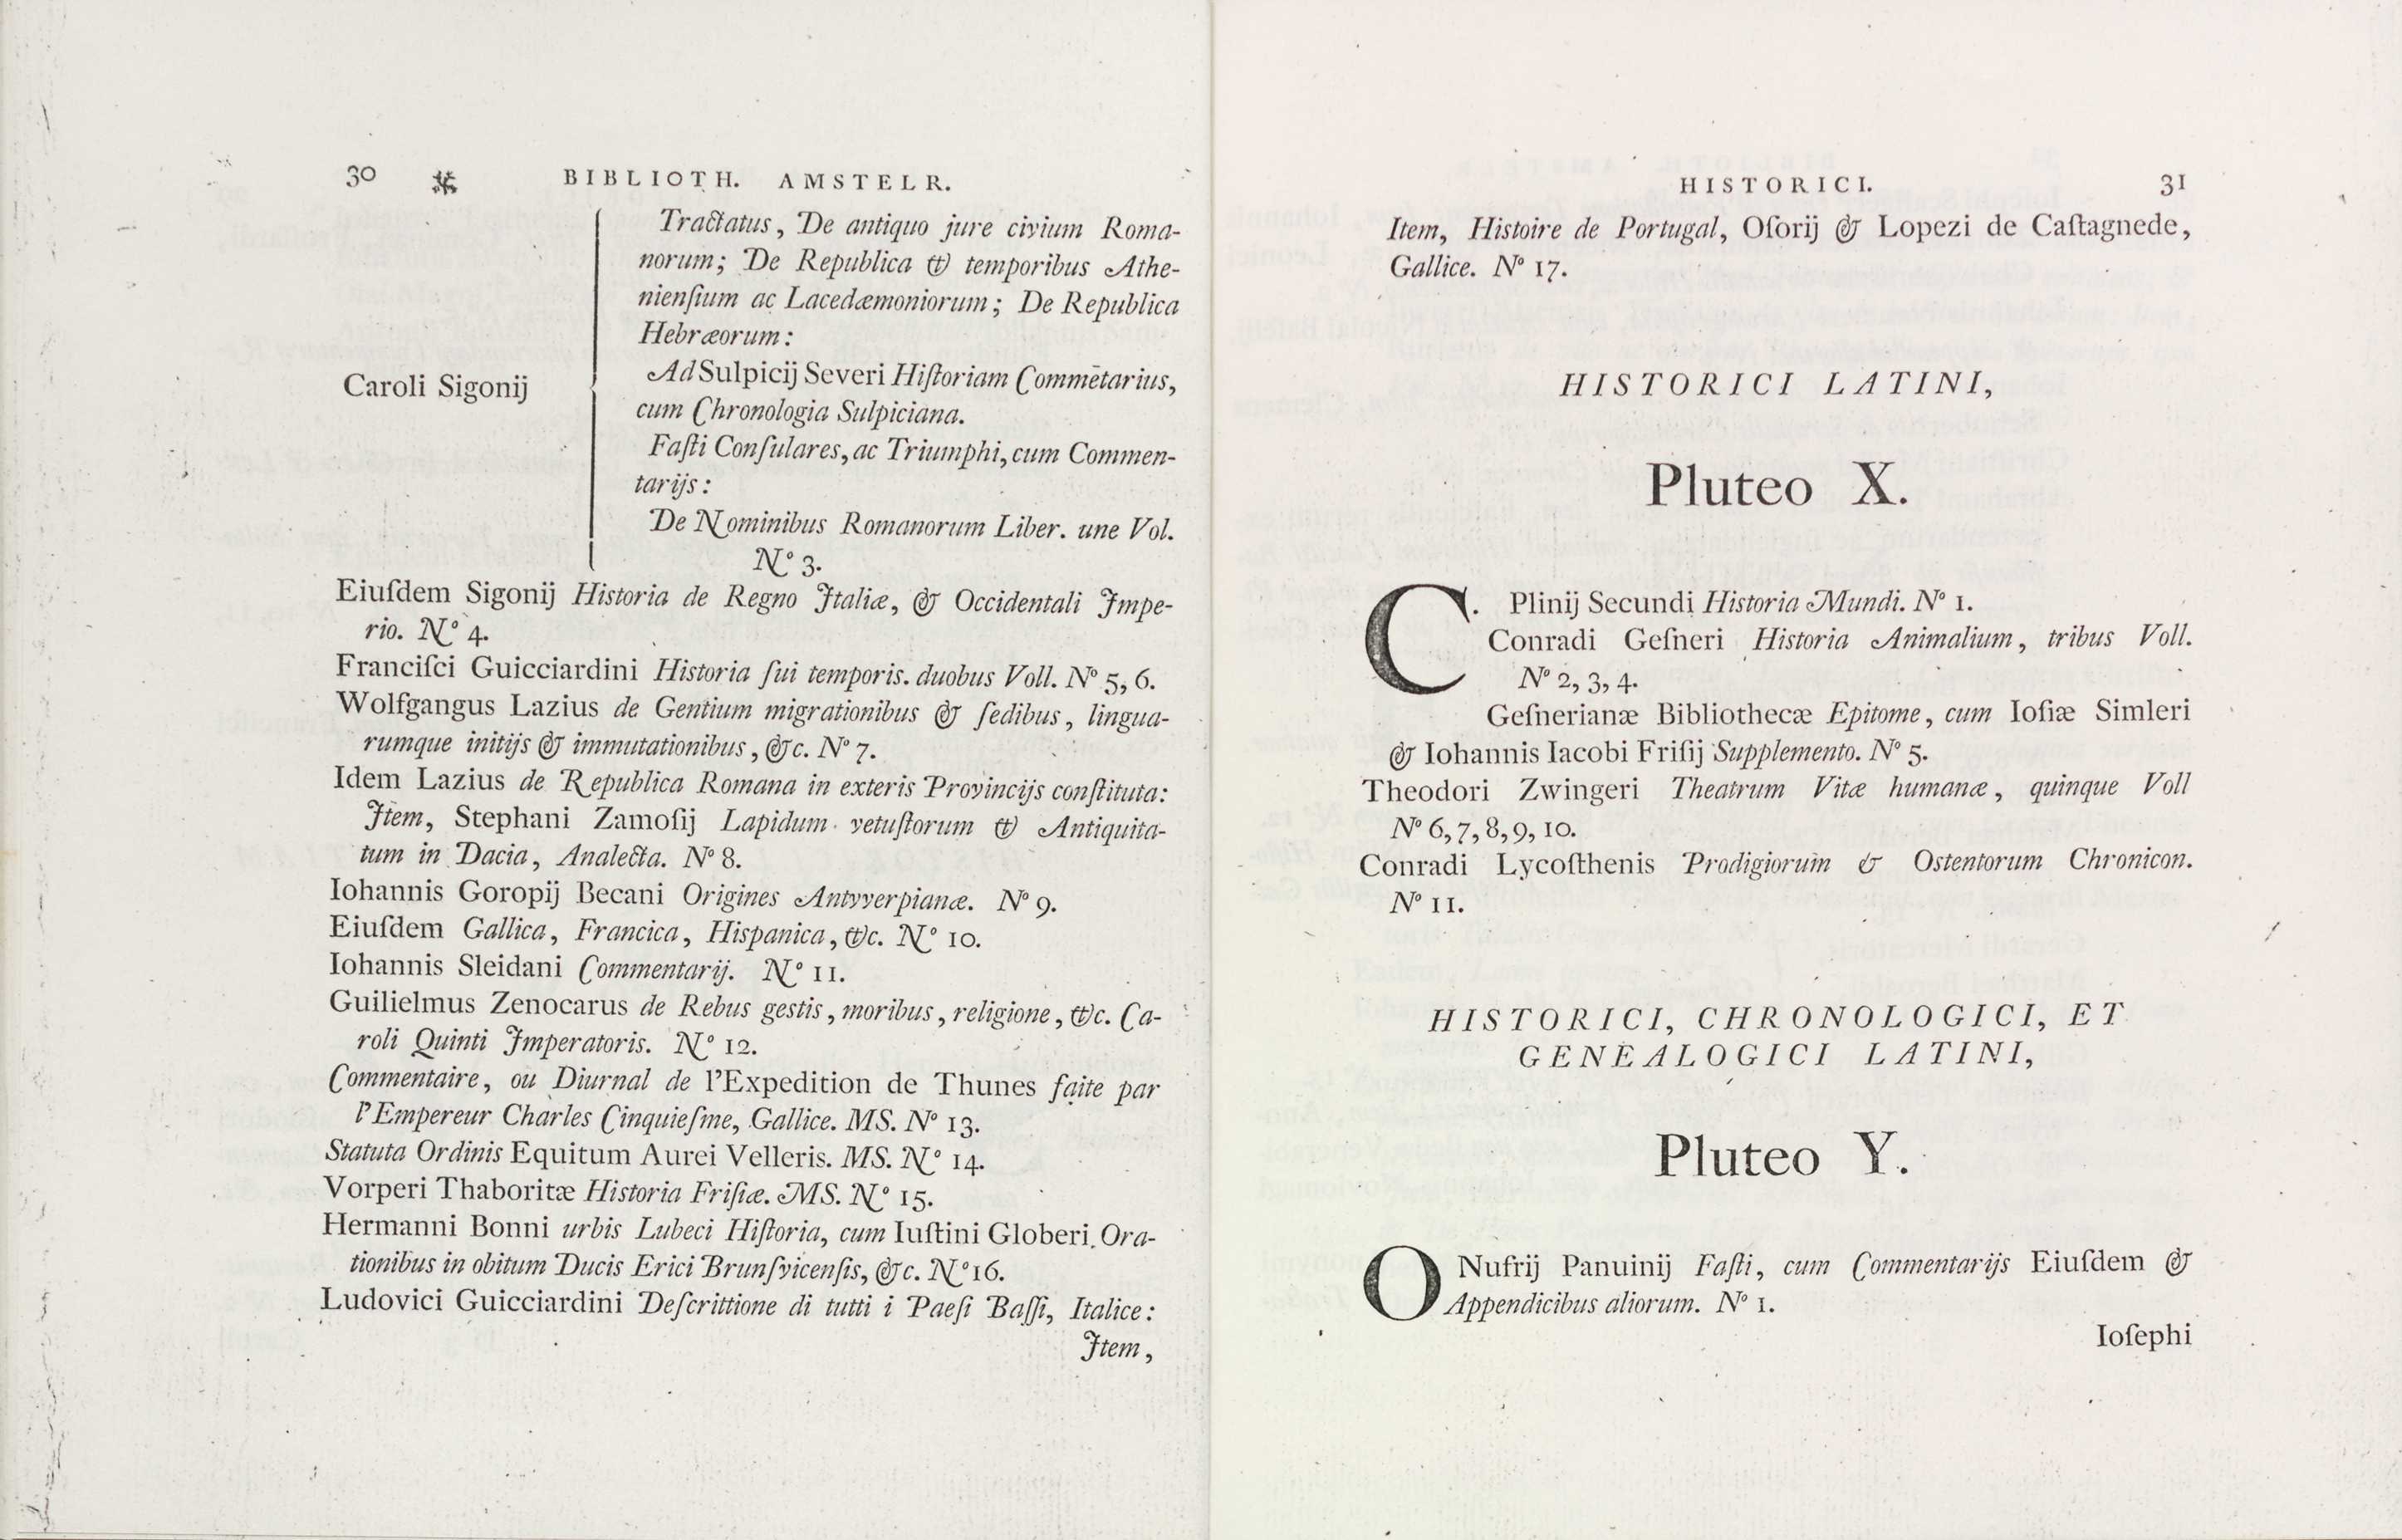 30 BIBLIOTH. AMSTELR.
Tractatus, De antiquo jure civium Roma-
norum; De Republica & temporibus Athe-
nienſium ac Lacedæmoniorum; De Republica
Hebræorum:
Ad Sulpicij Severi Hiſtoriam Commētarius,
Caroli Sigonij
cum Chronologia Sulpiciana.
Faſti Conſulares, ac Triumphi, cum Commen-
tarijs:
De Nominibus Romanorum Liber. une Vol.
Nº 3.
Eiuſdem Sigonij Historia de Regno Italiæ, & Occidentali Impe-
rio. Nº 4.
Franciſci Guicciardini Historia ſui temporis. duobus Voll. Nº 5, 6.
Wolfgangus Lazius de Gentium migrationibus & ſedibus, lingua-
rumque initijs & immutationibus, &c. Nº 7.
Idem Lazius de Republica Romana in exteris Provincijs conſtituta:
Item, Stephani Zamoſij Lapidum vetuſtorum & Antiquita-
tum in Dacia, Analecta. Nº 8.
Iohannis Goropij Becani Origines Antvverpianæ. Nº 9.
Eiuſdem Gallica, Francica, Hispanica, &c. Nº 10.
Iohannis Sleidani Commentarij. Nº 11.
Guilielmus Zenocarus de Rebus gestis, moribus, religione, &c. Ca-
roli Quinti Imperatoris. Nº 12.
Commentaire, ou Diurnal de l'Expedition de Thunes faite par
l'Empereur Charles Cinquieſme, Gallice. MS. Nº 13.
Statuta Ordinis Equitum Aurei Velleris. MS. Nº 14.
Vorperi Thaboritæ Historia Friſiæ. MS. Nº 15.
Hermanni Bonni urbis Lubeci Hiſtoria, cum Iuſtini Globeri Ora-
tionibus in obitum Ducis Erici Brunſvicenſis, &c. Nº 16.
Ludovici Guicciardini Deſcrittione di tutti i Paeſi Baſſi, Italice:
Item,
HISTORICI. 31
Item, Histoire de Portugal, Oſorij & Lopezi de Caſtagnede,
Gallice. Nº 17.
HISTORICI LATINI,
Pluteo X.
C. Plinij Secundi Historia Mundi. Nº 1.
Conradi Geſneri Historia Animalium, tribus Voll.
Nº 2, 3, 4.
Geſnerianæ Bibliothecæ Epitome, cum Ioſiæ Simleri
& Iohannis Iacobi Friſij Supplemento. Nº 5.
Theodori Zwingeri Theatrum Vitæ humanæ, quinque Voll
Nº 6, 7, 8, 9, 10.
Conradi Lycoſthenis Prodigiorum & Ostentorum Chronicon.
Nº 11.
HISTORICI, CHRONOLOGICI, ET
GENEALOGICI LATINI,
Pluteo Y.
ONufrij Panuinij Faſti, cum Commentarijs Eiuſdem &
Appendicibus aliorum. Nº 1.
Ioſephi